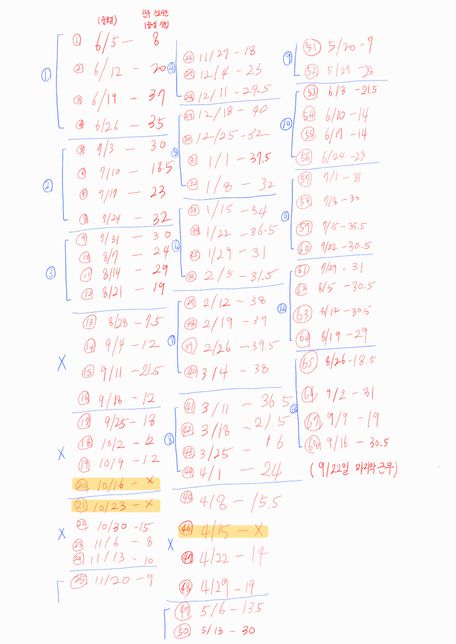 (실근로) 한주 근로시간
① 6/5 - 8
② 6/12 - 20
③ 6/19 - 37
④ 6/26 - 35
①
⑤ 7/3 - 30
⑥ 7/10 - 18.5
⑦ 7/17 - 23
⑧ 7/24 - 32
②
⑨ 7/31 - 30
⑩ 8/7 - 24
⑪ 8/14 - 29
⑫ 8/21 - 19
③
⑬ 8/28 - 7.5
⑭ 9/4 - 12
⑮ 9/11 - 21.5
⑯ 9/18 - 12
X
⑰ 9/25 - 13
⑱ 10/2 - 12
⑲ 10/9 - 12
⑳ 10/16 - X
X
㉑ 10/23 - X
㉒ 10/30 - 15
㉓ 11/6 - 8
㉔ 11/13 - 10
X
㉕ 11/20 - 9
㉖ 11/27 - 18
㉗ 12/4 - 23
㉘ 12/11 - 29.5
④
㉙ 12/18 - 40
㉚ 12/25 - 32
㉛ 1/1 - 37.5
㉜ 1/8 - 32
⑤
㉝ 1/15 - 34
㉞ 1/22 - 36.5
㉟ 1/29 - 31
㊱ 2/5 - 31.5
⑥
㊲ 2/12 - 38
㊳ 2/19 - 39
㊴ 2/26 - 39.5
㊵ 3/4 - 38
⑦
㊶ 3/11 - 36.5
㊷ 3/18 - 21.5
㊸ 3/25 - 16
㊹ 4/1 - 24
⑧
㊺ 4/8 - 15.5
㊻ 4/15 - X
㊼ 4/22 - 14
㊽ 4/29 - 19
X
㊾ 5/6 - 13.5
㊿ 5/13 - 30
51 5/20 - 7
52 5/27 -
⑨
53 6/3 - 21.5
54 6/10 - 14
55 6/17 - 14
56 6/24 - 23
⑩
57 7/1 - 31
58 7/8 - 30
59 7/15 - 35.5
60 7/22 - 30.5
⑪
61 7/29 - 31
62 8/5 - 30.5
63 8/12 - 30.5
64 8/19 - 29
⑫
65 8/26 - 18.5
66 9/2 - 31
67 9/9 - 19
68 9/16 - 30.5
⑬
(9/22일 마지막 근무)